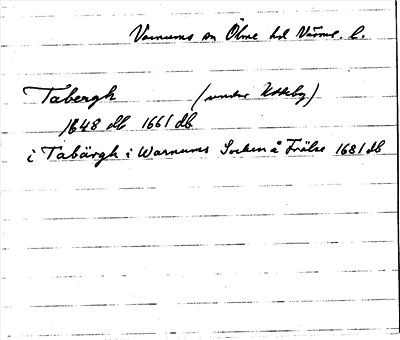 Varnums sn Ölme hd Värml. l.
Tabergh (under Kokeby)
1648 db 1661 db
i Tabärgh i Warnums Socken å Frälse 1681 db